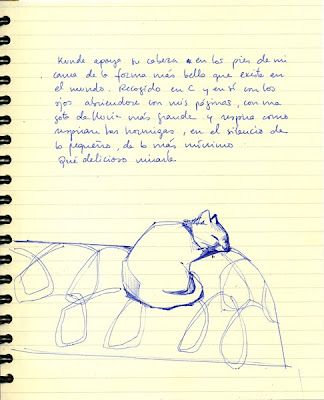 Kunde apoya tu cabeza en los pies de mi
cama de la forma más bella que existe en
el mundo. Recogido en C y en sí con los
ojos abriendose con mis páginas, con una
gota de lluvia más grande y respira como
respiran las hormigas, en el silencio de
lo pequeño, de lo más mínimo
Qué delicioso mirarte